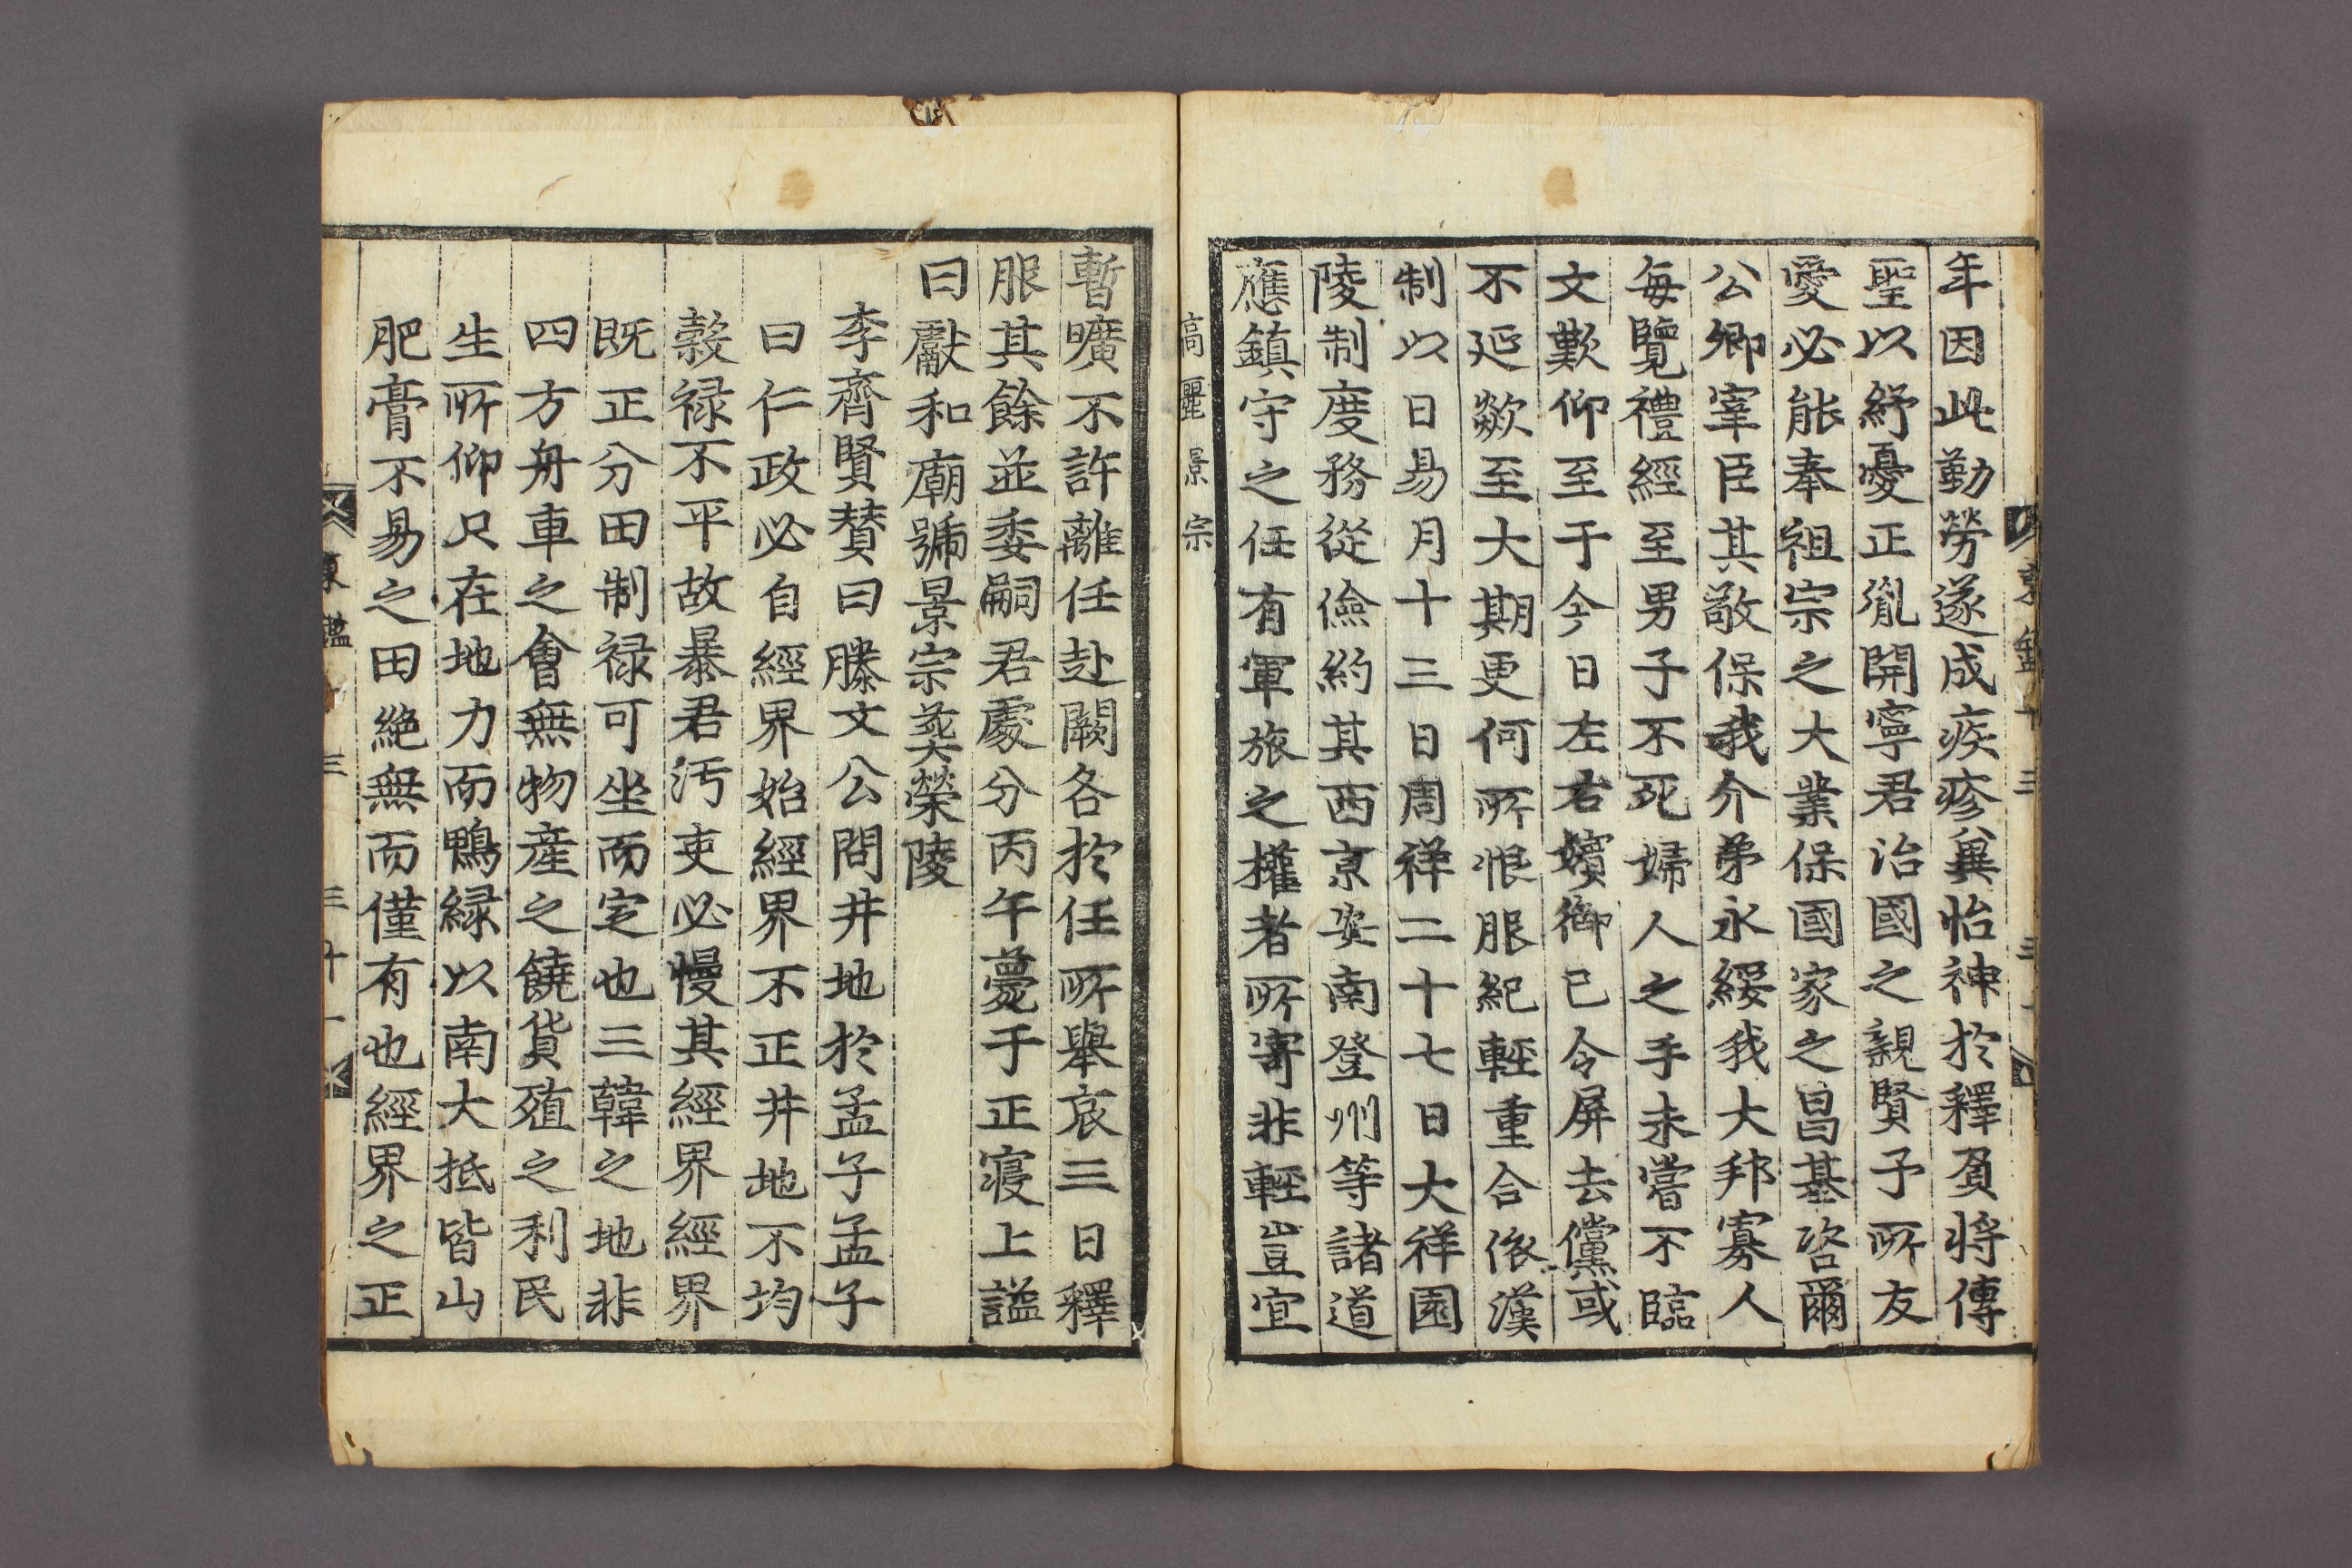 年因此勤勞遂成疾疹冀怡神於釋負將傳
聖以紓憂正胤開寧君治國之親賢予所友
愛必能奉祖宗之大業保國家之昌基咨爾
公卿宰臣其敬保我介弟永綏我大邦寡人
每覽禮經至男子不死婦人之手未嘗不臨
文歎仰至于今日左右嬪御已令屏去儻或
不延歘至大期更何所恨服紀輕重合依漢
制以日易月十三日周祥二十七日大祥園
陵制度務從儉約其西京安南登州等諸道
應鎮守之任有軍旅之權者所寄非輕豈宜
高麗景宗
暫曠不許離任赴闕各於任所擧哀三日釋
服其餘並委嗣君處分丙午薨于正寢上謚
曰獻和廟號景宗葬榮陵
李齊賢賛曰滕文公問井地於孟子孟子
曰仁政必自經界始經界不正井地不均
糓禄不平故暴君汚吏必慢其經界經界
既正分田制禄可坐而定也三韓之地非
四方舟車之會無物産之饒貨殖之利民
生所仰只在地力而鴨緑以南大抵皆山
肥膏不易之田絶無而僅有也經界之正
東鑑 十三 三十一